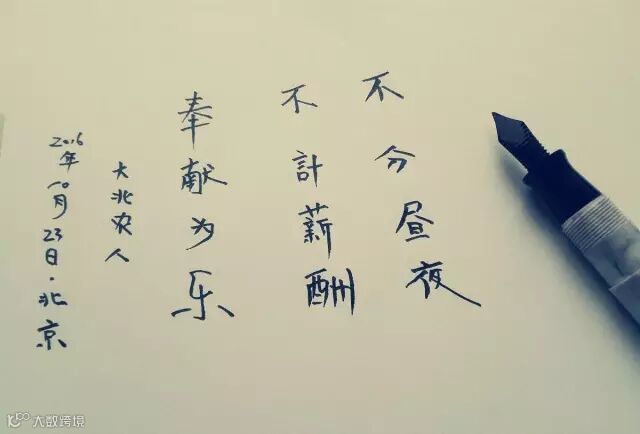 不分昼夜
不計薪酬
奉献为乐
大北农人
2016年10月23日·北京
大数跨境